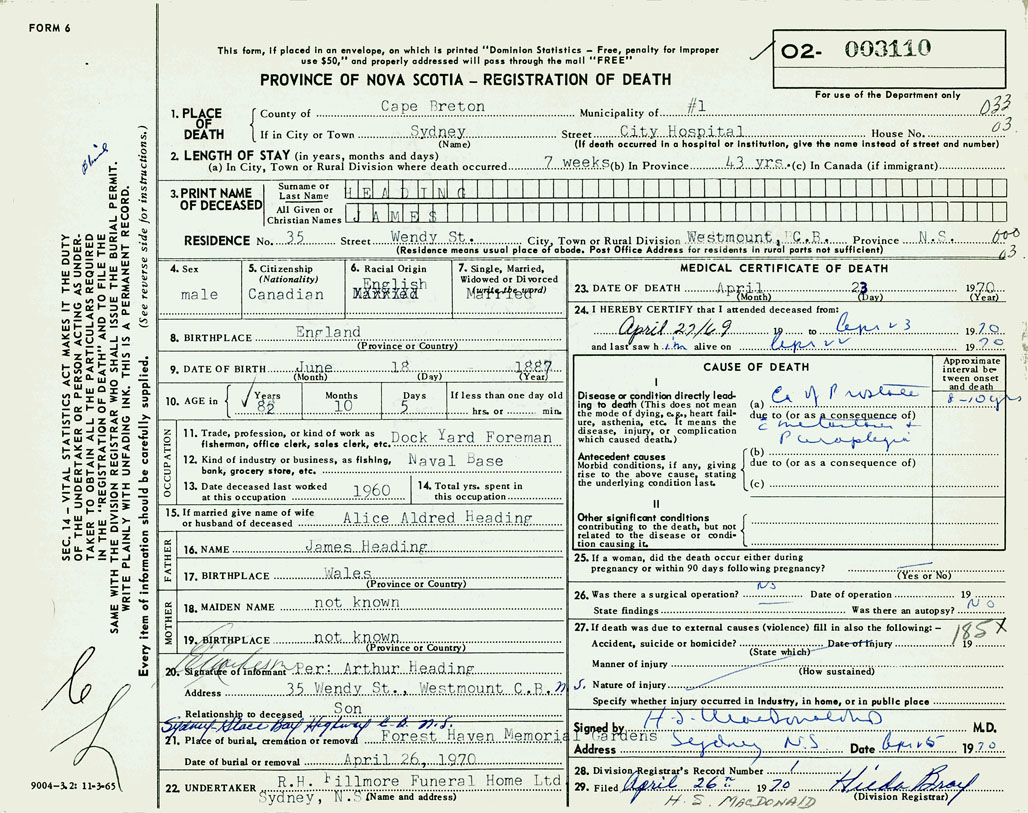 FORM 6
This form, if placed in an envelope, on which is printed "Dominion Statistics – Free, penalty for improper
use $50," and properly addressed will pass through the mail "FREE"
02- 003110
For use of the Department only
PROVINCE OF NOVA SCOTIA – REGISTRATION OF DEATH
1. PLACE OF DEATH
County of Cape Breton Municipality of #1 033
If in City or Town Sydney Street City Hospital House No. 03.
(Name) (If death occurred in a hospital or institution, give the name instead of street and number)
2. LENGTH OF STAY (in years, months and days)
(a) In City, Town or Rural Division where death occurred 7 weeks (b) In Province 43 yrs. (c) In Canada (if immigrant)
3. PRINT NAME OF DECEASED
Surname or Last Name HEADING
All Given or Christian Names JAMES
RESIDENCE No. 35 Street Wendy St. City, Town or Rural Division Westmount, C.B. Province N.S.
(Residence means usual place of abode. Post Office Address for residents in rural parts not sufficient) 03.
4. Sex
male
5. Citizenship
(Nationality)
Canadian
6. Racial Origin
English
7. Single, Married,
Widowed or Divorced
(write the word)
Married
8. BIRTHPLACE England
(Province or Country)
9. DATE OF BIRTH June 18 1887
(Month) (Day) (Year)
10. AGE in Years Months Days If less than one day old
82 10 5 hrs. or min.
OCCUPATION
11. Trade, profession, or kind of work as
fisherman, office clerk, sales clerk, etc. Dock Yard Foreman
12. Kind of industry or business, as fishing,
bank, grocery store, etc. Naval Base
13. Date deceased last worked
at this occupation 1960
14. Total yrs. spent in
this occupation
15. If married give name of wife
or husband of deceased Alice Aldred Heading
FATHER
16. NAME James Heading
17. BIRTHPLACE Wales
(Province or Country)
MOTHER
18. MAIDEN NAME not known
19. BIRTHPLACE not known
(Province or Country)
20. Signature of informant Per: Arthur Heading
Address 35 Wendy St., Westmount C.B. N.S.
Relationship to deceased Son
Sydney Glace Bay Highway C.B. N.S.
21. Place of burial, cremation or removal Forest Haven Memorial Gardens
Date of burial or removal April 26, 1970
22. UNDERTAKER R.H. Fillmore Funeral Home Ltd
Sydney, N.S (Name and address)
MEDICAL CERTIFICATE OF DEATH
23. DATE OF DEATH April 23 1970
(Month) (Day) (Year)
24. I HEREBY CERTIFY that I attended deceased from:
April 27/69 19 to Apr 23 1970
and last saw him alive on Apr 22 1970
CAUSE OF DEATH
Approximate
interval be-
tween onset
and death
I
Disease or condition directly lead-
ing to death (This does not mean
the mode of dying, e.g., heart fail-
ure, asthenia, etc. It means the
disease, injury, or complication
which caused death.)
(a) Ca of Prostate 8-10 yrs
due to (or as a consequence of)
c metastases +
Paraplegia
Antecedent causes
Morbid conditions, if any, giving
rise to the above cause, stating
the underlying condition last.
(b)
due to (or as a consequence of)
(c)
II
Other significant conditions
contributing to the death, but not
related to the disease or condi-
tion causing it.
25. If a woman, did the death occur either during
pregnancy or within 90 days following pregnancy?
(Yes or No)
26. Was there a surgical operation? Date of operation 19
State findings Was there an autopsy? NO
27. If death was due to external causes (violence) fill in also the following: – 185X
Accident, suicide or homicide? Date of Injury 19
(State which)
Manner of injury
(How sustained)
Nature of injury
Specify whether injury occurred in Industry, in home, or in public place
Signed by H.S. MacDonald M.D.
Address Sydney N.S Date Apr 25 1970
28. Division Registrar's Record Number
29. Filed April 26th 1970 Hilda Bray
H. S. MACDONALD (Division Registrar)
SEC. 14 – VITAL STATISTICS ACT MAKES IT THE DUTY
OF THE UNDERTAKER OR PERSON ACTING AS UNDER-
TAKER TO OBTAIN ALL THE PARTICULARS REQUIRED
IN THE "REGISTRATION OF DEATH" AND TO FILE THE
SAME WITH THE DIVISION REGISTRAR WHO SHALL ISSUE THE BURIAL PERMIT.
WRITE PLAINLY WITH UNFADING INK. THIS IS A PERMANENT RECORD.
Every item of information should be carefully supplied. (See reverse side for instructions.)
9004-3.2: 11-3-65